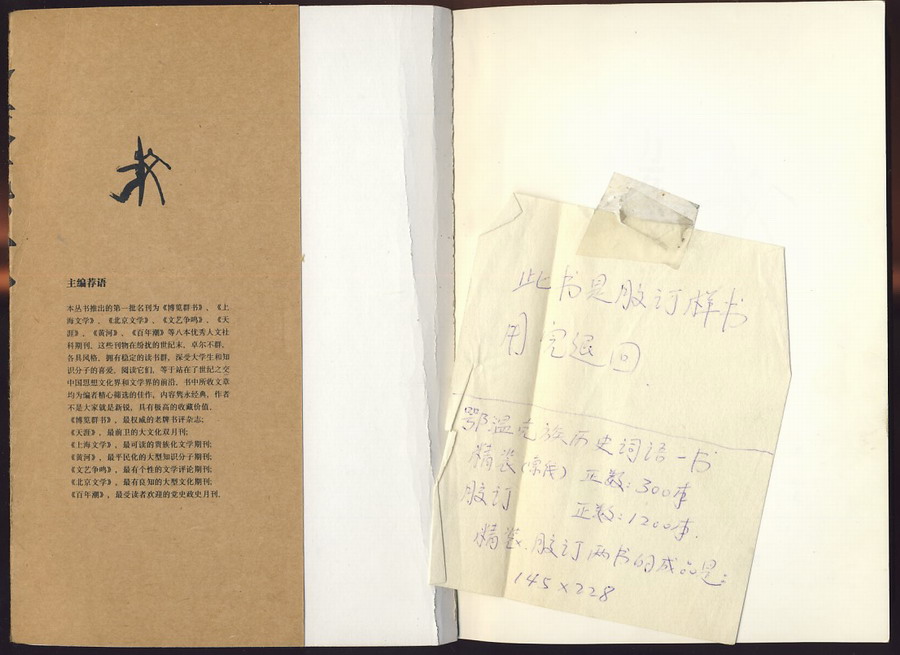 主编荐语
本丛书推出的第一批名刊为《博览群书》、《上
海文学》、《北京文学》、《文艺争鸣》、《天
涯》、《黄河》、《百年潮》等八本优秀人文社
科期刊。这些刊物在纷扰的世纪末，卓尔不群，
各具风格，拥有稳定的读书群，深受大学生和知
识分子的喜爱。阅读它们，等于站在了世纪之交
中国思想文化界和文学界的前沿。书中所收文章
均为编者精心筛选的佳作，内容隽永经典，作者
不是大家就是新锐，具有极高的收藏价值。
《博览群书》，最权威的老牌书评杂志;
《天涯》，最前卫的大文化双月刊;
《上海文学》，最可读的贵族化文学期刊;
《黄河》，最平民化的大型知识分子期刊;
《文艺争鸣》，最有个性的文学评论期刊;
《北京文学》，最有良知的大型文化期刊;
《百年潮》，最受读者欢迎的党史政史月刊。
此书是胶订样书
用完退回.
鄂温克族历史词语一书
精装 正数:300本
胶订 正数:1200本.
精装.胶订两书的成品是:
145×228